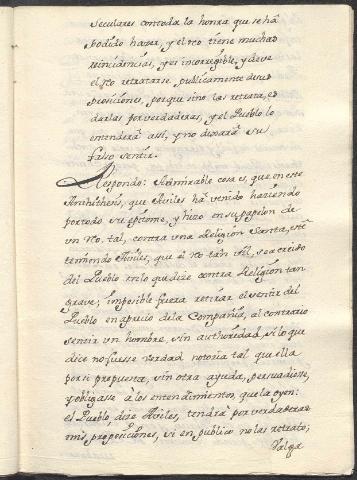 seculares con toda la honra que se há
podido hazer, y el reo tiene muchas
reincidencias, y es incorregible, y deve
el reo retratarse publicamente de sus
proposiciones, porque sino las retrata, es
darlas por verdaderas, y el Pueblo lo
entenderà assi, y no dexarà su
falso sentir.
Respondo: Admirable cosa es, que en este
Antithesis, que Aviles hà venido haziendo
por todo su epitome, y hizo en su papelon de
un reo tal, contra una Religion Santa, esté
temiendo Aviles, que el reo tan vil, sea creido
del Pueblo en lo que dize contra Religion tan
grave; imposible fuera retirar el sentir del
Pueblo en aprecio de la Compañia, al contrario
sentir un hombre, sin authoridad, si lo que
dice no fuesse verdad notoria tal que ella
por si propuesta, sin otra ayuda, persuadiesse,
y obligasse à los entendimientos, que la oyen:
el Pueblo, dize Aviles, tendrà por verdaderas
mis proposiciones, si en publico no las retrato;
Salga